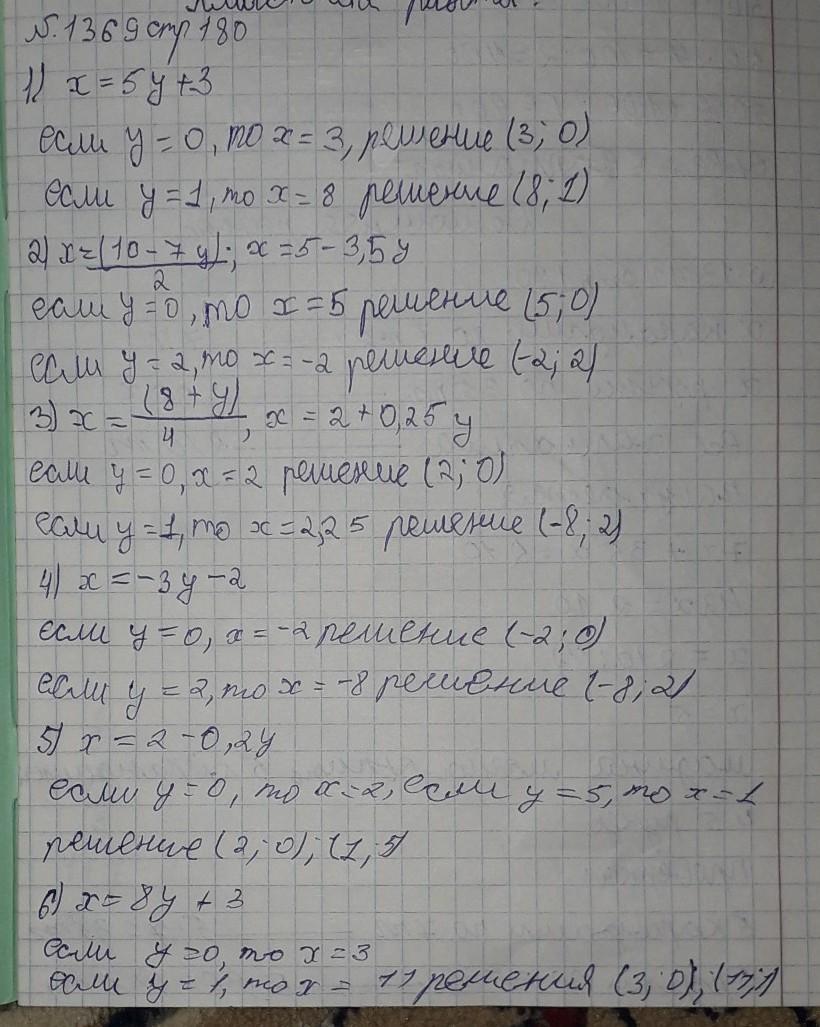 работа.
N.1369 стр 180
1) x = 5y + 3
если y = 0, то x = 3, решение (3; 0)
если y = 1, то x = 8 решение (8; 1)
2) x = (10 - 7y) / 2; x = 5 - 3,5y
если y = 0, то x = 5 решение (5; 0)
если y = 2, то x = -2 решение (-2; 2)
3) x = (8 + y) / 4, x = 2 + 0,25y
если y = 0, x = 2 решение (2; 0)
если y = 1, то x = 2,25 решение (-8; 2)
4) x = -3y - 2
если y = 0, x = -2 решение (-2; 0)
если y = 2, то x = -8 решение (-8; 2)
5) x = 2 - 0,2y
если y = 0, то x = 2, если y = 5, то x = 1
решение (2; 0), (1; 5)
6) x = 8y + 3
если y = 0, то x = 3
если y = 1, то x = 11 решения (3; 0), (11; 1)